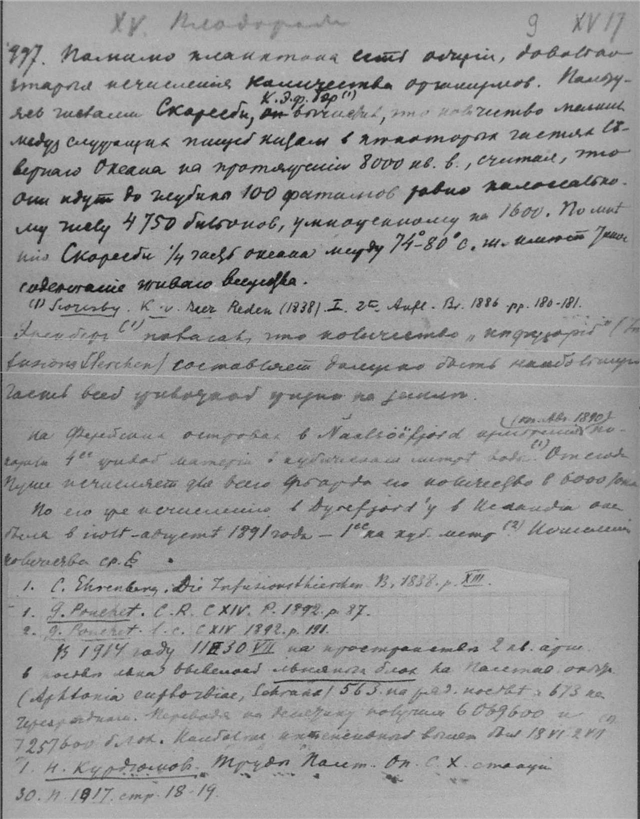 XV. 9 XV 17
997. Помимо планктона есть общия, довольно
старыя исчисления количества организмов. Пользу-
ясь числами Скоресби, К.Э. ф. Бэр (1) вычислил, что количество мелких
медуз служащих пищей китам в некоторых частях Се-
вернаго Океана на протяжении 8000 кв. в., считая, что
они идут до глубины 100 фатомов равно колоссально-
му числу 4750 бильонов, умноженному на 1600. По мне-
нию Скоресби 1/4 часть океана между 74°-80° с. ш. имеет такое
содержание живаго вещества.
(1) Scoresby. K. v. Baer Reden (1838) I. 2te Aufl. Br. 1886 pp. 180-181.
Эренберг (1) показал, что количество „инфузорий" (In-
fusionsthierchen) составляет должно быть наибольшую
часть всей животной жизни на земле.
на Ферейских островах в Naalsöefjord
4cc живой материи в кубическом метре воды (1). Отсюда
Пуше исчисляет для всего фьорда его количество в 6000 тонн
По его же исчислению в Dyrefjord'у в Исландии оно
было в июле-августе 1891 года – 1cc на куб. метр (2)
количества ср. §
1. C. Ehrenberg. Die Infusionsthierchen. B. 1838. p. XIII.
1. G. Pouchet. C. R. CXIV. P. 1892. p. 87.
2. G. Pouchet. l. c. CXIV 1892. p. 191.
В 1914 году 30 VII на пространстве 2 кв. арш.
в посеве льна льняных блох на Полтав. опытн.
(Aphtonia euphorbiae, Schrank) 563 на ряд. посеве и 673 на
Переводя на десятину получим 6039600 и
7257600 блох. Наиболее интенсивный вылет был 18 VI-2 VII (1)
1. Н. Курдюмов. Труды Полт. Оп. С. Х. станции
30. П. 1917. стр. 18-19.